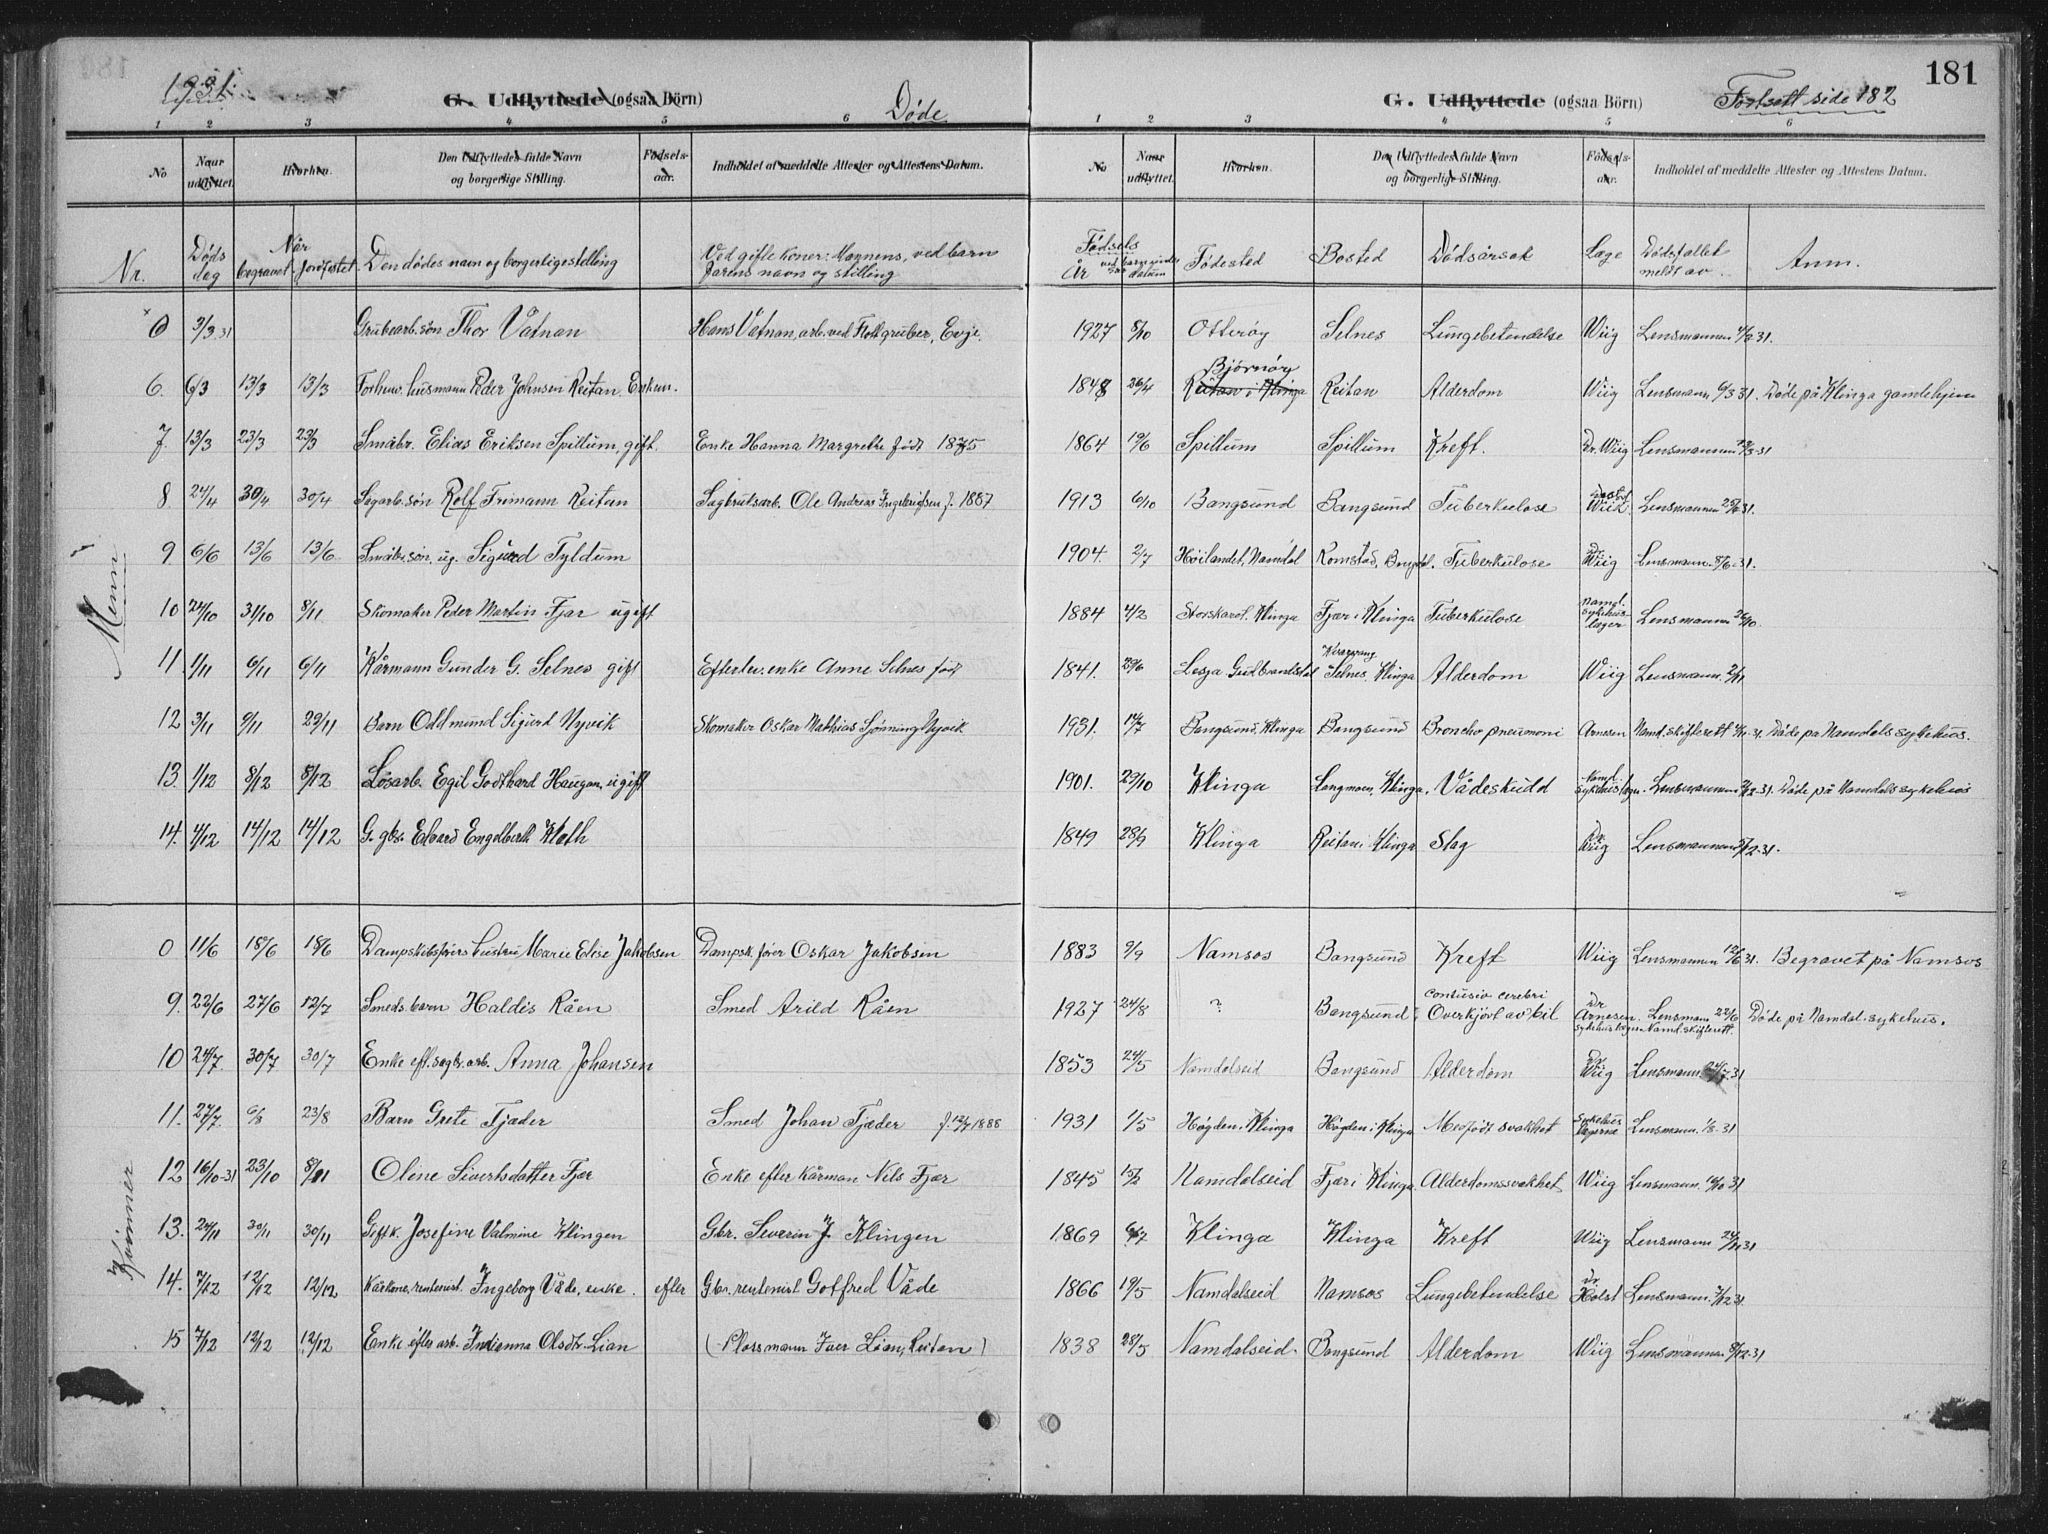 181
1931.
G. Udflyttede (ogsaa Börn)
Døde
G. Udflyttede (ogsaa Börn)
Fortsatt side 182
1 2 3 4 5 6
1 2 3 4 5 6
No Naar udflyttet. Hvorhen. Den Udflyttedes fulde Navn og borgerlige Stilling. Födsels-aar. Indholdet af meddelte Attester og Attestens Datum.
No Naar udflyttet. Hvorhen. Den Udflyttedes fulde Navn og borgerlige Stilling. Födsels-aar. Indholdet af meddelte Attester og Attestens Datum.
Nr. Døds dag Når begravet jordfestet Den dødes navn og borgerlige stilling Ved gifte koner: Mannens, ved barn farens navn og stilling Fødsels År datum Fødested Bosted Dødsårsak Læge Dødsfallet meldt av Anm.
Menn
0 3/3 31 Grubearb. søn Thor Vatnan Hans Vatnan, arb. ved Flottgruber, Evje. 1927 8/10 Otterøy Selnes Lungebetendelse Wiig Lensmannen 31.
6. 6/3 13/3 13/3 Forhenv. husmann Peder Johnsen Reitan Enkem. 1848 26/4 Bjørnøy Reitan i Klinga Reitan Alderdom Wiig Lensmann 6/3 31. Døde på Klinga gamlehjem
7. 13/3 23/3 23/3 Småbr. Elias Eriksen Spillum, gift. Enke Hanna Margrethe født 1875 1864 19/6 Spillum Spillum Kreft. Dr. Wiig Lensmannen 31
8. 24/4 30/4 30/4 Sagarb. søn Rolf Frimann Reitan Sagbruksarb. Ole Andreas Ingebrigtsen f. 1887 1913 6/10 Bangsund Bangsund Tuberkulose Wiik Lensmannen 31.
9. 6/6 13/6 13/6 Småbr. søn, ug. Sigurd Tyldum 1904. 2/7 Høilandet, Namdal Romstad, Tuberkulose Dr Wiig Lensmann. 8/6-31.
10 24/10 31/10 8/11 Skomaker Peder Martin Fjær ugift 1884 4/2 Klinga Fjær i Klinga Tuberkulose Namd. sykehus læger Lensmann 26/10.
11 1/11 6/11 6/11 Kårmann Gunder G. Selnes gift Efterlev. enke Anne Selnes født 1841. 29/6 Lesja Gudbrandsdal Selnes, Klinga Alderdom Wiig Lensmann. 2/11
12 3/11 9/11 29/11 Barn Oddmund Sigurd Nyvik Skomaker Oskar Mathias Nyvik 1931. 14/7 Bangsund, Klinga Bangsund Broncho pneumoni Arnesen Namd. skifterett 31. Døde på Namdals sykehus.
13. 1/12 8/12 8/12 Løsarb. Egil Godthard Haugan, ugift 1901. 29/10 Klinga Langmoen, Klinga. Vådeskudd Namd. sykehus Lensmannen 31. Døde på Namdals sykehus
14. 4/12 14/12 14/12 G. gbr. Edvard Engelberth Kloth 1849 28/9 Klinga Reitan i Klinga Slag Dr. Wiig Lensmannen 31.
Kvinner
0 11/6 18/6 18/6 Dampskibsførers hustru Marie Elise Jakobsen Dampsk. fører Oskar Jakobsen 1883 9/9 Namsos Bangsund Kreft Wiig Lensmannen 12/6 31. Begravet på Namsos
9. 22/6 27/6 12/7 Smeds. barn Haldis Råen Smed Arild Råen 1927 24/8 ? Bangsund Contusio cerebri Overkjørt av bil Dr Arnesen Lensmann 22/6 Namd. skifterett. Døde på Namdal. sykehus.
10 24/7. 30/7 30/7 Enke eft. sagbr. arb. Anna Johansen 1853 24/5 Namdalseid Bangsund Alderdom Dr Wiig Lensmann. 31
11. 27/7. 6/8 23/8 Barn Grete Fjæder Smed Johan Fjæder f. 12/7 1888 1931 1/5 Høgden. Klinga Høgden i Klinga Medfødt svakhet Sykehus lægerne Lensmann. 1/8-31
12 16/10-31 23/10 8/11 Olene Sivertsdatter Fjær Enke efter kårman Nils Fjær 1845 15/2 Namdalseid Fjær i Klinga. Alderdomssvakhet Wiig Lensmann. 31
13. 24/11 30/11 30/11 Gift k. Josefine Valmine Klingen Gbr. Severin J. Klingen 1869 Klinga Klinga Kreft Wiig Lensmann 31
14. 7/12 12/12 12/12 Kårkone, rentenist. Ingeborg Våde, enke. efter Gbr. rentenist Gotfred Våde 1866 19/5 Namdalseid Namsos Lungebetendelse Dr. Holst Lensmann. 7/12 31.
15 7/12 12/12 12/12 Enke efter arb. Indianna Olsdtr. Lian (Plassmann Iver Lian, Reitan) 1838 28/5 Namdalseid. Bangsund Alderdom Wiig Lensmannen 31